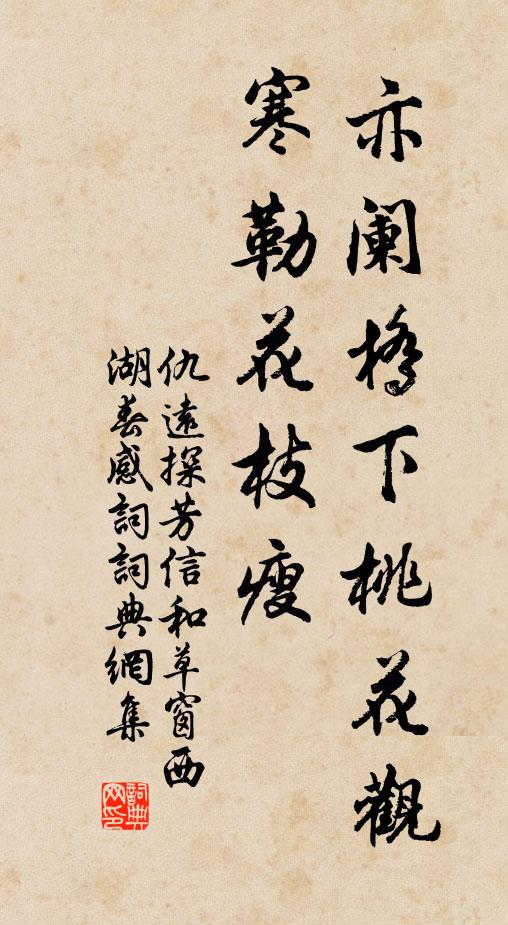 亦阑桥下桃花觀
寒勒花枝瘦
仇遠探芳信和草窗西
湖春感詞詞典網集
詞典网印